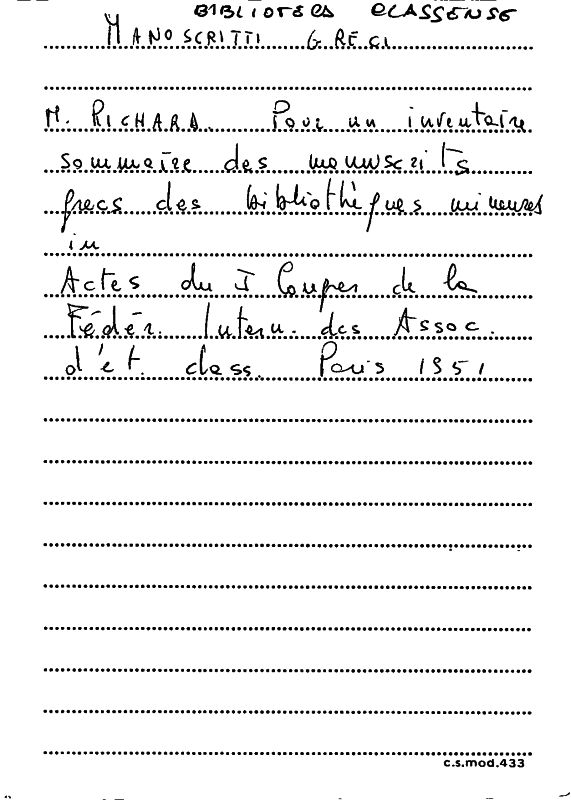 BIBLIOTECA CLASSENSE
MANOSCRITTI GRECI
M. RICHARD. Pour un inventaire
sommaire des manuscrits
grecs des bibliothèques mineures
in
Actes du I Congrès de la
Fédér. Intern. des Assoc.
d'ét. class. Paris 1951
c.s.mod.433